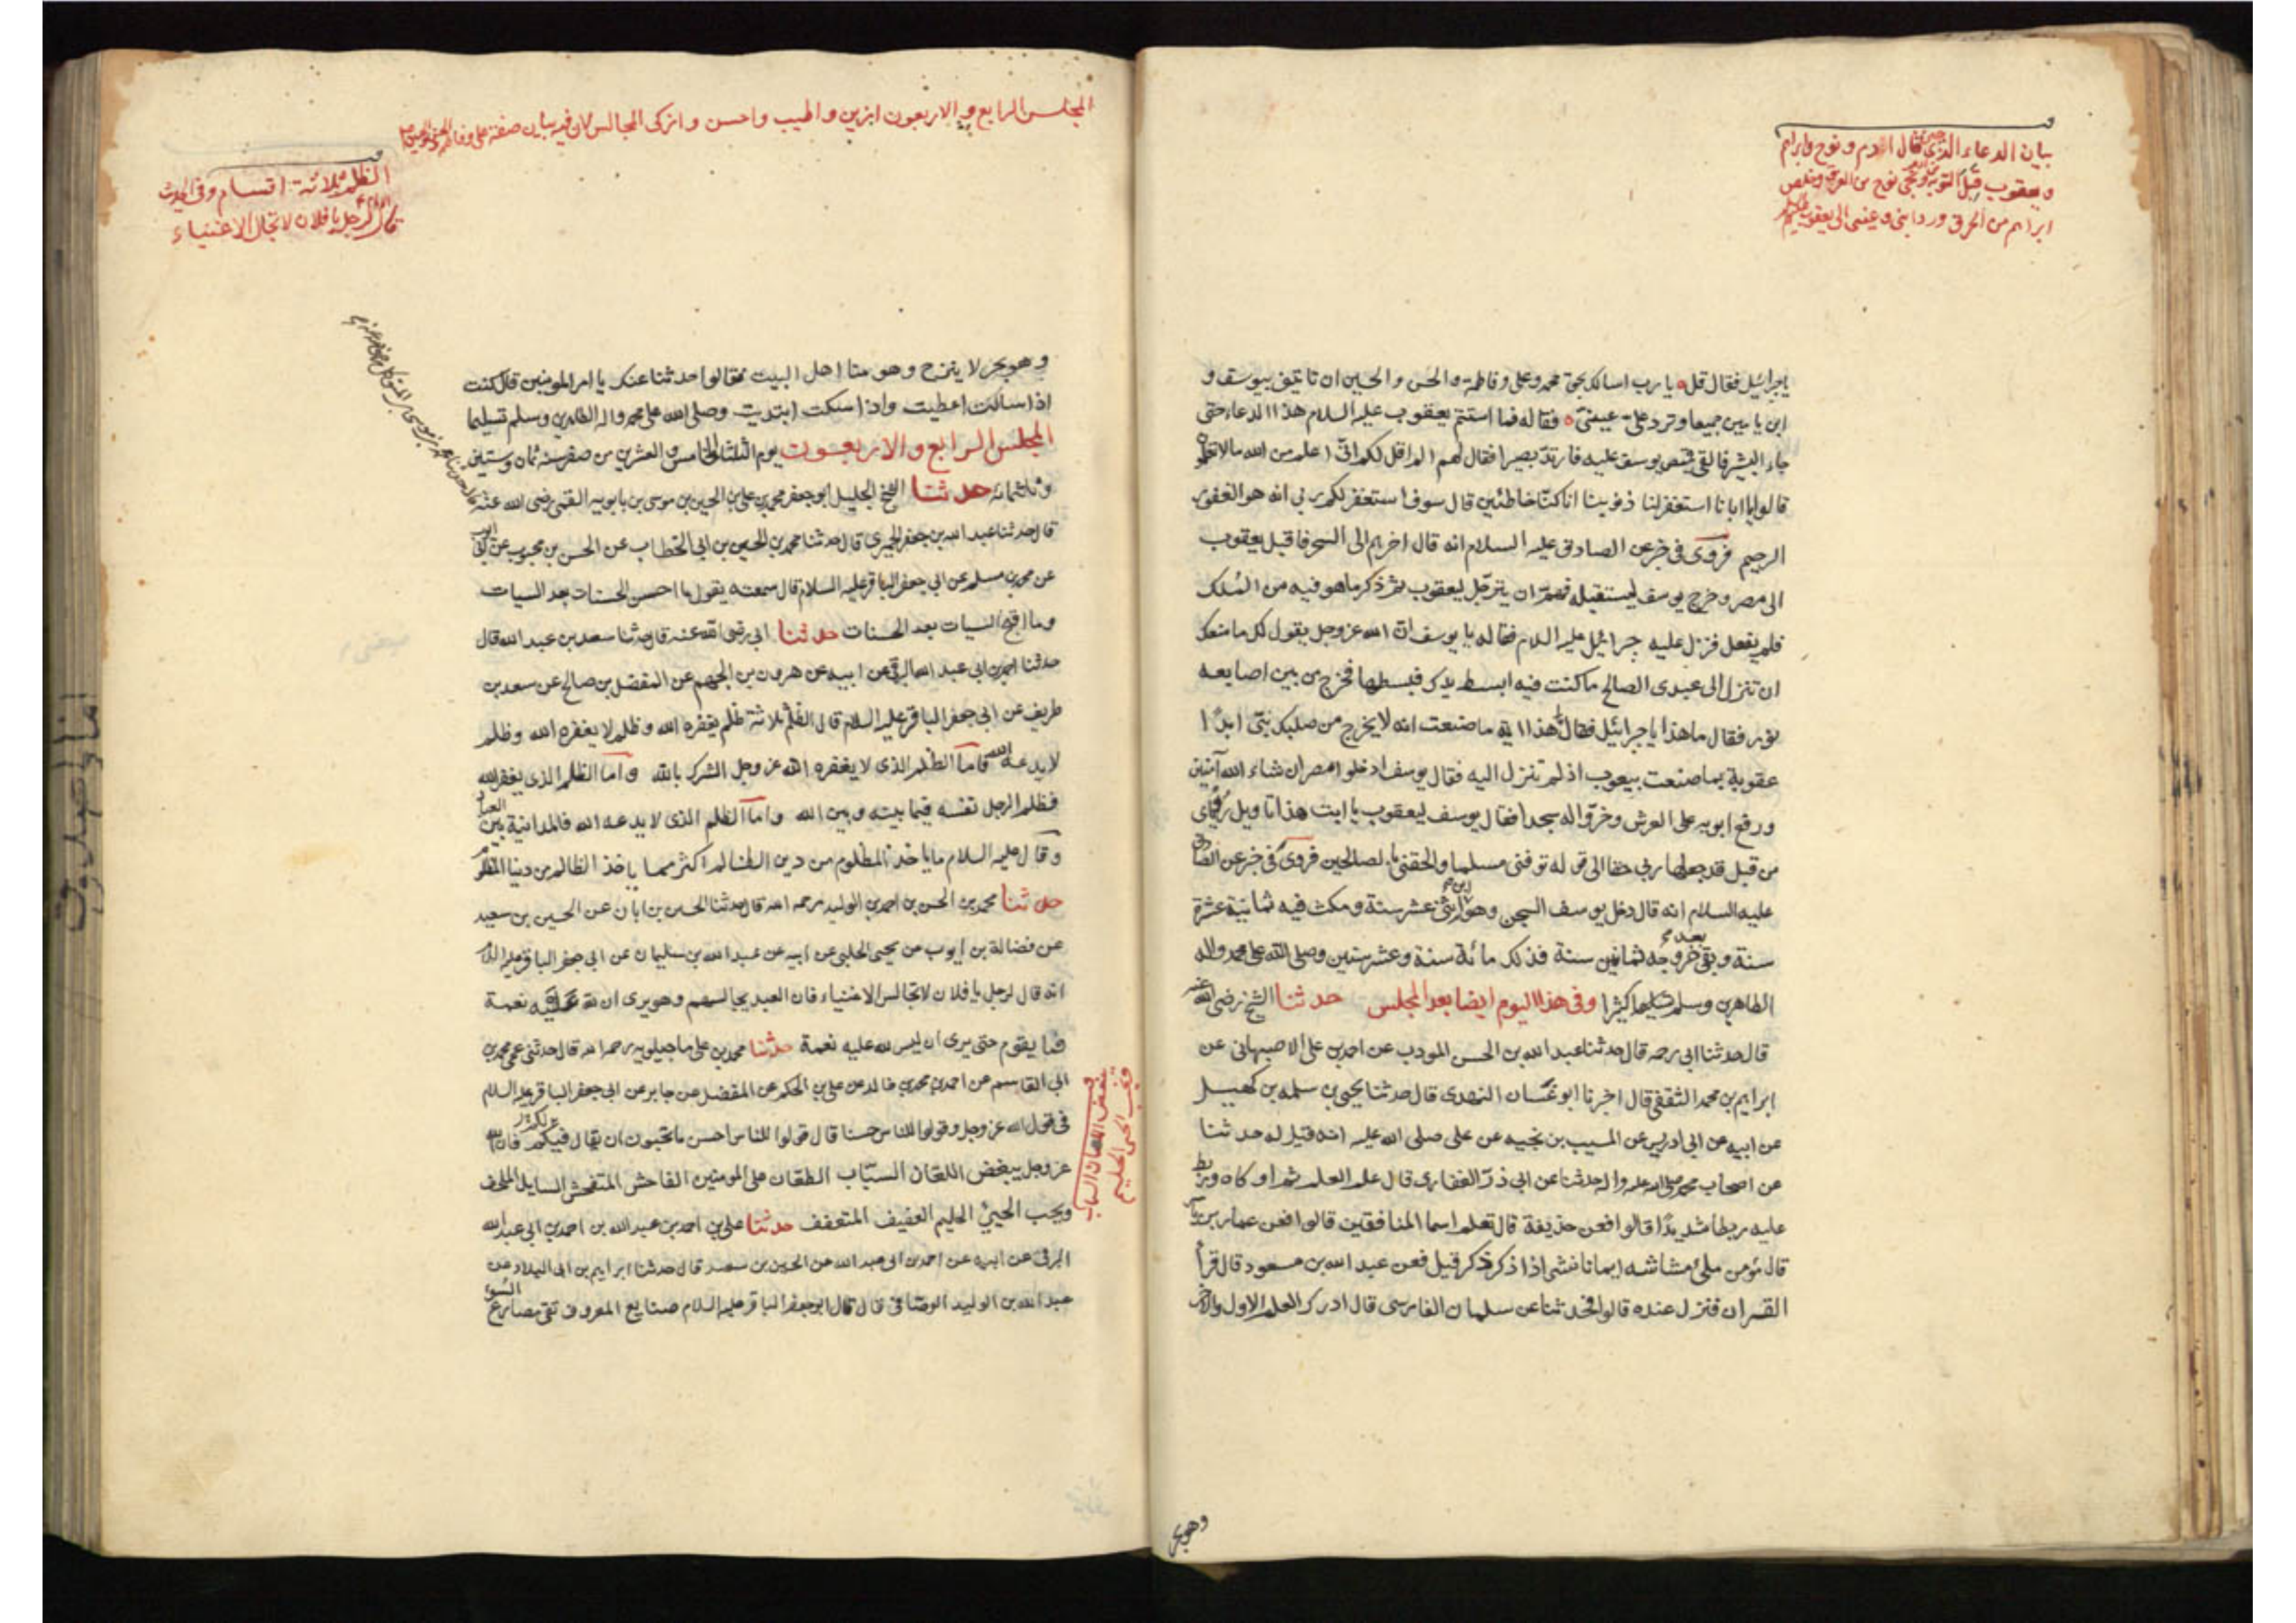 بيان الدعاء الذي قال آدم ونوح وابراهيم
ويعقوب قبل التوبة ونجى نوح من الغرق وخلص
ابراهيم من الحرق ورد ابني وعيني الى يعقوب
ياجبرائيل فقال قل يا رب اسالك بحق محمد وعلي وفاطمة والحسن والحسين ان تاتيني بيوسف و
ابن يامين جميعا وترد علي عيني فقاله فما استتم يعقوب عليه السلام هذا الدعاء حتى
جاء البشير فالقى قميص يوسف عليه فارتد بصيرا فقال لهم الم اقل لكم اني اعلم من الله مالا تعلمون
قالوا يا ابانا استغفر لنا ذنوبنا انا كنا خاطئين قال سوف استغفر لكم ربي انه هو الغفور
الرحيم فروى في خبر عن الصادق عليه السلام انه قال اخرهم الى السحر فاقبل يعقوب
الى مصر وخرج يوسف ليستقبله فهم ان يترجل ليعقوب ثم ذكر ما هو فيه من الملك
فلم يفعل فنزل عليه جبرائيل عليه السلام فقال له يا يوسف ان الله عز وجل يقول لك ما منعك
ان تنزل الى عبدي الصالح ما كنت فيه ابسط يدك فبسطها فخرج من بين اصابعه
نور فقال ما هذا يا جبرائيل فقال هذا انه ما صنعت انه لا يخرج من صلبك نبي ابدا
عقوبة بما صنعت بيعقوب اذ لم تنزل اليه فقال يوسف ادخلوا مصر ان شاء الله آمنين
ورفع ابويه على العرش وخروا له سجدا فقال يوسف ليعقوب يا ابت هذا تاويل رؤياي
من قبل قد جعلها ربي حقا الى قوله توفني مسلما والحقني بالصالحين فروى في خبر عن الصادق
عليه السلام انه قال دخل يوسف السجن وهو ابن اثني عشر سنة ومكث فيه ثمانية عشرة
سنة وبقي بعد خروجه ثمانين سنة فذلك مائة سنة وعشر سنين وصلى الله على محمد واله
الطاهرين وسلم تسليما كثيرا وفي هذا اليوم ايضا بعد المجلس حدثنا الشيخ رضي الله عنه
قال حدثنا ابي رحمه قال حدثنا عبد الله بن الحسن المودب عن احمد بن علي الاصبهاني عن
ابراهيم بن محمد الثقفي قال اخبرنا ابو غسان النهدي قال حدثنا يحيى بن سلمه بن كهيل
عن ابيه عن ابي ادريس عن المسيب بن نجيه عن علي صلى الله عليه انه قيل له حدثنا
عن اصحاب محمد صلى الله عليه واله حدثنا عن ابي ذر الغفاري قال علم العلم ثم اوكاه وربط
عليه ربطا شديدا قالوا فعن حذيفة قال تعلم اسما المنافقين قالوا فعن عمار بن ياسر
قال مؤمن ملئ مشاشه ايمانا نسي اذا ذكر ذكر قيل فعن عبد الله بن مسعود قال قرأ
القران فنزل عنده قالوا فحدثنا عن سلمان الفارسي قال ادرك العلم الاول والاخر
وهو بحر
المجلس الرابع والاربعون ازين واطيب واحسن وازكى المجالس لان فيه بيان صفة علي وفاطمة
الظلم ثلاثة اقسام وفي الحديث
قال لرجل يا فلان لا تجالس الاغنياء
وهو بحر لا ينزح وهو منا اهل البيت فقالوا حدثنا عنك يا امير المومنين قال كنت
اذا سالت اعطيت واذا سكت ابتديت وصلى الله على محمد واله الطاهرين وسلم تسليما
المجلس الرابع والاربعون يوم الثلثاء الخامس والعشرين من صفر سنه ثمان وستين
وثلثمائه حدثنا الشيخ الجليل ابو جعفر محمد بن علي بن الحسين بن موسى بن بابويه القمي رضي الله عنه
قال حدثنا عبد الله بن جعفر الحميري قال حدثنا محمد بن الحسين بن ابي الخطاب عن الحسن بن محبوب عن ابي ايوب
عن محمد بن مسلم عن ابي جعفر الباقر عليه السلام قال سمعته يقول ما احسن الحسنات بعد السيات
وما اقبح السيات بعد الحسنات حدثنا ابي رضي الله عنه قال حدثنا سعد بن عبد الله قال
حدثنا احمد بن ابي عبد الله البرقي عن ابيه عن هرون بن الجهم عن المفضل بن صالح عن سعد بن
طريف عن ابي جعفر الباقر عليه السلام قال الظلم ثلاثة ظلم يغفره الله وظلم لا يغفره الله وظلم
لا يدعه الله فاما الظلم الذي لا يغفره الله عز وجل الشرك بالله واما الظلم الذي يغفر الله
فظلم الرجل نفسه فيما بينه وبين الله واما الظلم الذي لا يدعه الله فالمداينة بين العباد
وقال عليه السلام ما ياخذ المظلوم من دين الظالم اكثر مما ياخذ الظالم من دنيا المظلوم
حدثنا محمد بن الحسن بن احمد بن الوليد رحمه الله قال حدثنا الحسين بن ابان عن الحسين بن سعيد
عن فضالة بن ايوب عن يحيى الحلبي عن ابيه عن عبد الله بن سليمان عن ابي جعفر الباقر عليه السلام
انه قال لرجل يا فلان لا تجالس الاغنياء فان العبد يجالسهم وهو يرى ان لله عليه نعمة
فما يقوم حتى يرى ان ليس لله عليه نعمة حدثنا محمد بن علي ماجيلويه رحمه الله قال حدثني عمي محمد بن
ابي القاسم عن احمد بن محمد بن خالد عن علي بن الحكم عن المفضل عن جابر عن ابي جعفر الباقر عليه السلام
في قول الله عز وجل وقولوا للناس حسنا قال قولوا للناس احسن ما تحبون ان يقال فيكم فان الله
عز وجل يبغض اللعان السباب الطعان على المومنين الفاحش المتفحش السايل الملحف
ويحب الحيي الحليم العفيف المتعفف حدثنا علي بن احمد بن عبد الله بن احمد بن ابي عبد الله
البرقي عن ابيه عن احمد بن ابي عبد الله عن الحسين بن سعيد قال حدثنا ابراهيم بن ابي البلاد عن
عبد الله بن الوليد الوصافي قال قال ابو جعفر الباقر عليه السلام صنايع المعروف تقي مصارع السوء
يبغض اللعان السباب
ويحب الحيي الحليم